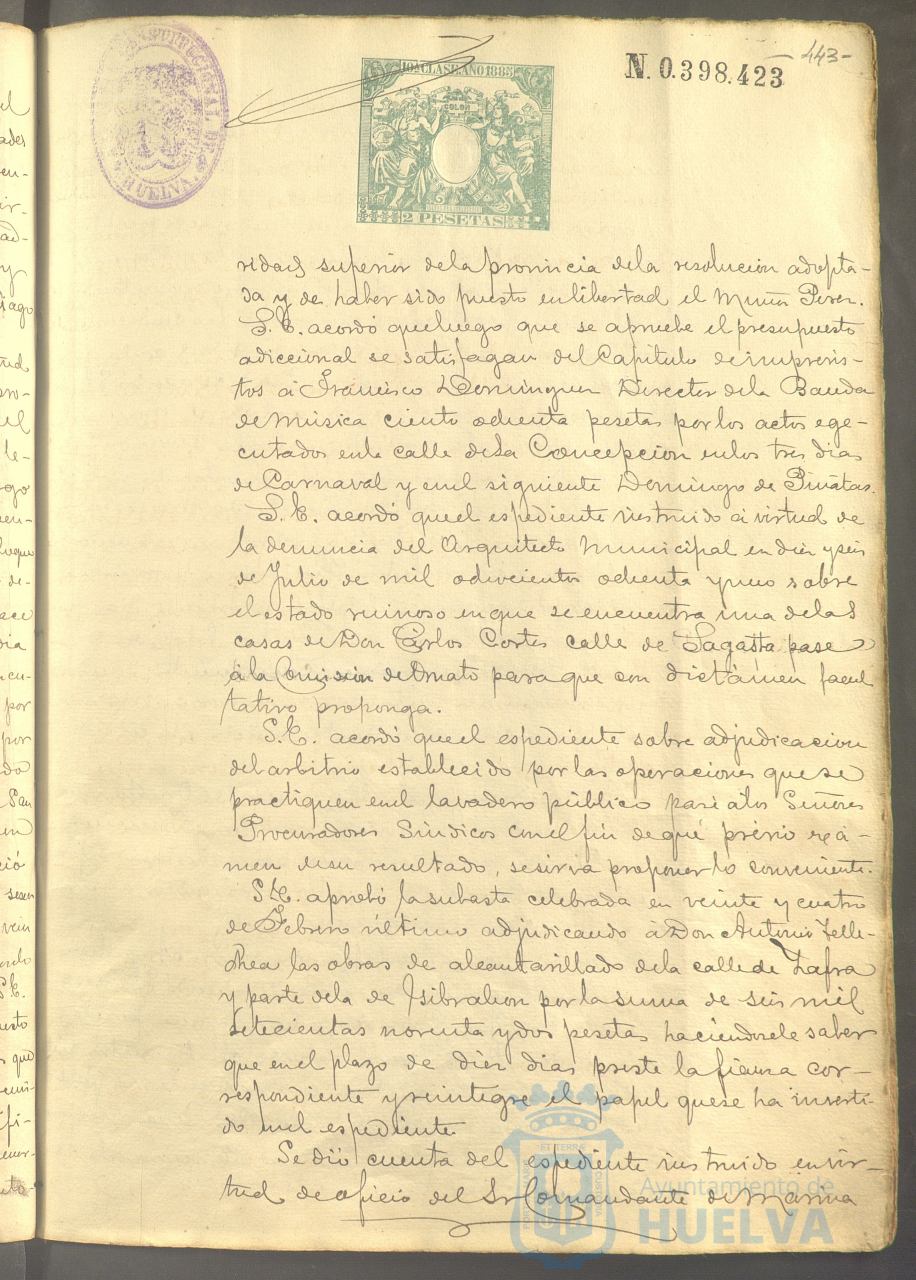 -443-
N. 0.398.423
10ª CLASE. AÑO 1885
COLON
2 PESETAS
HUELVA
ridad superior dela provincia dela resolucion adopta-
da y de haber sido puesto en libertad el Muñoz Perez.
S.E. acordó que luego que se apruebe el presupuesto
adiccional se satisfagan del Capitulo de imprevis-
tos á Francisco Dominguez Director dela Banda
de Música ciento ochenta pesetas por los actos ege-
cutados enla calle dela Concepcion enlos tres dias
de Carnaval y enel siguiente Domingo de Piñatas.
S.E. acordó que el espediente instruido á virtud de
la denuncia del Arquitecto Municipal en diez y seis
de Julio de mil ochocientos ochenta y uno sobre
el estado ruinoso en que se encuentra una delas
casas de Don Carlos Cortés calle de Sagasta pase
á la Comision de Ornato para que con dictámen facul
tativo proponga.
S.E. acordó que el espediente sobre adjudicacion
del arbitrio establecido por las operaciones que se
practiquen enel lavadero público pase alos Señores
Procuradores Sindicos con el fin de qué prévio exá-
men desu resultado, se sirva proponer lo conveniente.
S.E. aprobó la subasta celebrada en veinte y cuatro
de Febrero último adjudicando á Don Antonio Telle-
chea las obras de alcantarillado dela calle de Zafra
y parte dela de Isibrahon por la suma de seis mil
setecientas noventa y dos pesetas haciéndosele saber
que en el plazo de diez dias preste la fianza cor-
respondiente y reintegre el papel que se ha inverti-
do enel espediente.
Se dió cuenta del espediente instruido en vir-
tud de oficio del Sr Comandante de Marina
Ayuntamiento de
HUELVA